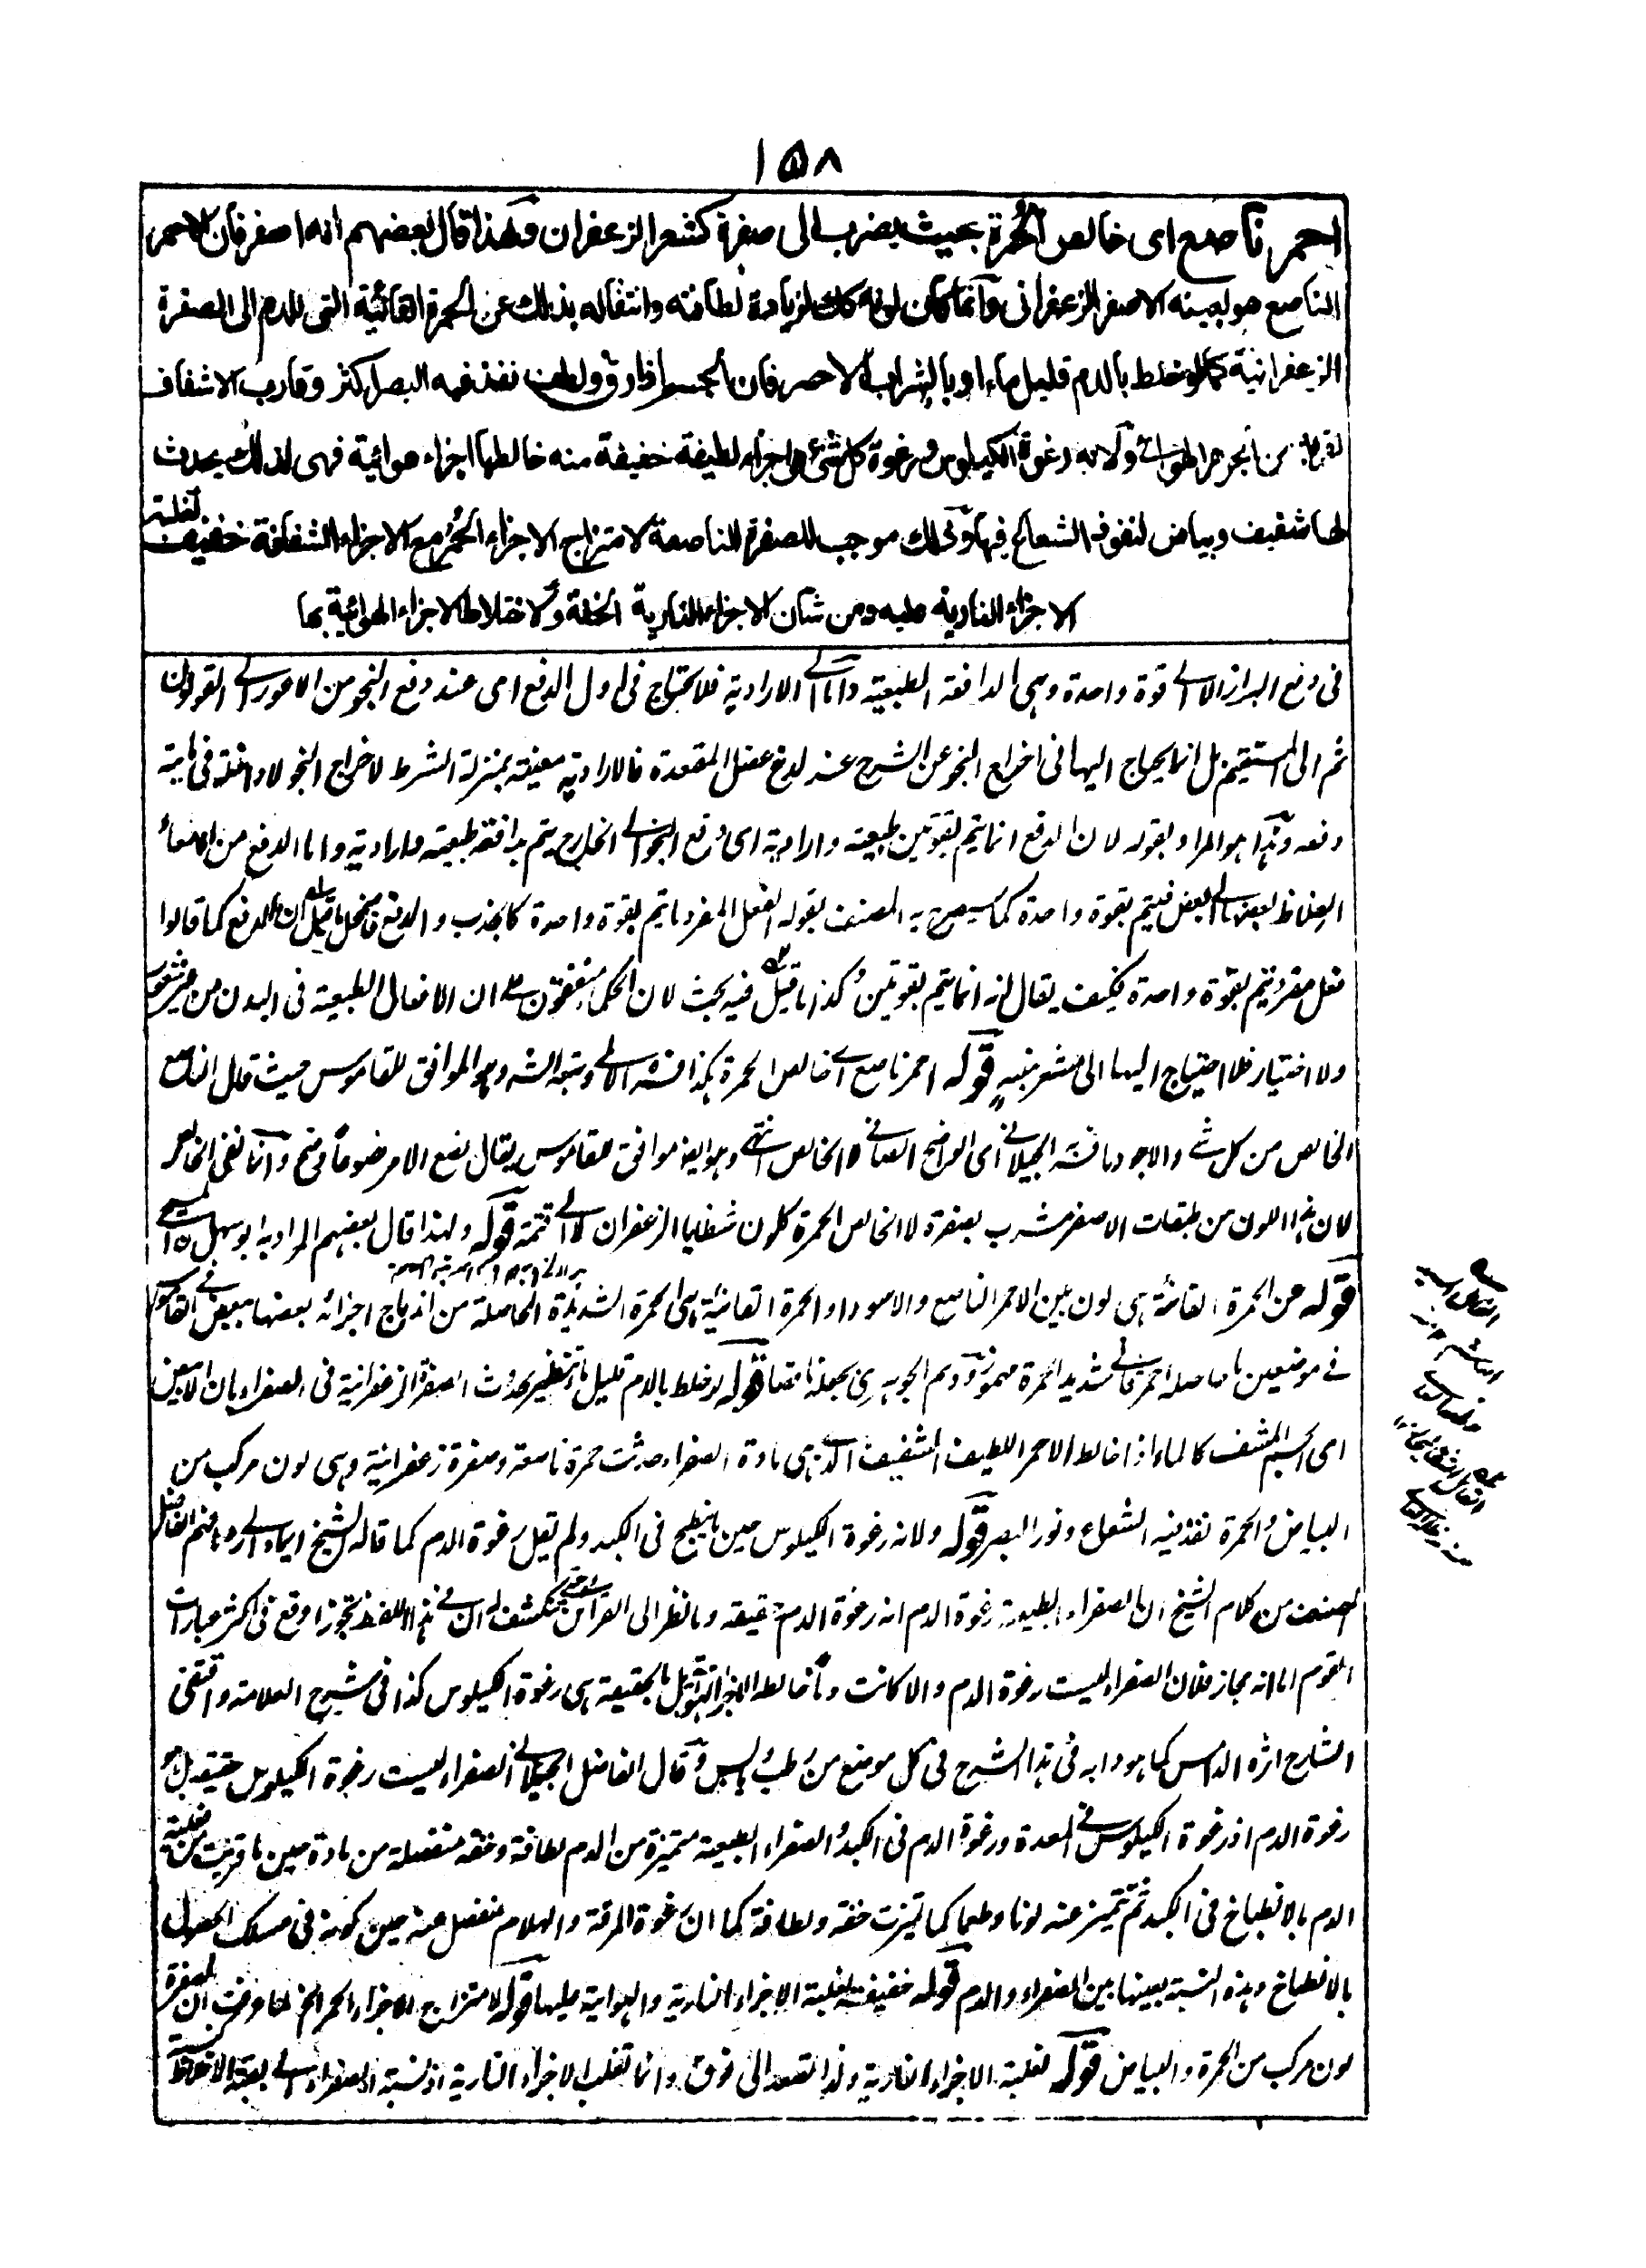 ١٥٨
احمر ناصع اى خالص الحمرة بحيث يضرب الى صفرة كشعر الزعفران ولهذا قال بعضهم انه اصفر فان الاحمر
الناصع هو بعينه الاصفر الزعفرانى وانما كان لونه كك لزيادة لطافته وانتقاله بذلك عن الحمرة القانئية التى للدم الى الصفرة
الزعفرانية كما لو خلط بالدم قليل ماء او بالشراب الاحمر فان الجسم اذا رق ولطف نفذ فيه البصر اكثر وقارب الاشفاف
لقربه من الجوهر الهوائى ولانه رغوة الكيلوس ورغوة كل شئ هى اجزاء لطيفة خفيفة منه خالطها اجزاء هوائية فهى لذلك يحدث
لها شفيف وبياض لنفوذ الشعاع فيها وذلك موجب للصفرة الناصعة لامتزاج الاجزاء الحمر مع الاجزاء الشفافة خفيف لغلبة
الاجزاء النارية عليه ومن شان الاجزاء النارية الخفة ولاختلاط الاجزاء الهوائية بها
فى دفع البراز الا الى قوة واحدة وهى الدافعة الطبيعية واما الى الارادية فلا تحتاج فى اول الدفع اى عند دفع النجو من الاعور الى القولون
ثم الى المستقيم بل انما يحتاج اليها فى اخراج النجو عن الشرج عند لدغ عضل المقعدة فالارادية معينة بمنزلة الشرط لاخراج النجو لا داخلة فى ماهية
دفعه وهذا هو المراد بقوله لان الدفع انما يتم بقوتين طبيعية وارادية اى دفع النجو الى الخارج يتم بدافعة طبيعية وارادية واما الدفع من الامعاء
الغلاظ بعضها الى البعض فيتم بقوة واحدة كما سيصرح به المصنف بقوله الفعل المفرد ما يتم بقوة واحدة كالجذب والدفع فانحل ما قيل ان الدفع كما قالوا
فعل مفرد يتم بقوة واحدة فكيف يقال انه انما يتم بقوتين وكذا ما قيل فيه بحث لان الكل متفقون على ان الافعال الطبيعية فى البدن من غير شعور
ولا اختيار فلا احتياج اليها الى مشعر منبه قوله احمر ناصع اى خالص الحمرة هكذا فسره الآملى وتبعه الشارح وهو الموافق للقاموس حيث قال الناصع
الخالص من كل شئ والاجود ما فسره الجيلانى اى الواضح الصافى لا الخالص انتهى وهو ايضا موافق للقاموس يقال نصع الامر نصوعا وضح وانما نفى الخالص
لان هذا اللون من طبقات الاصفر مشرب بصفرة لا الخالص الحمرة كلون شظايا الزعفران لا الى قتمة قوله ولهذا قال بعضهم المراد به ابو سهل المسيحى
قوله عن الحمرة القانئة هى لون بين الاحمر الناصع والاسود او الحمرة القانئية هى الحمرة الشديدة الحاصلة من اندماج اجزائه بعضها ببعض فى القاموس
فى موضعين ما حاصله احمر قانى شديد الحمرة مهموز ووهم الجوهرى بجعله ناقصا قوله لو خلط بالدم قليل ماء تنظير لحدوث الصفرة الزعفرانية فى الصفراء بان الابيض
اى الجسم المشف كالماء اذا خالط الاحمر اللطيف الشفيف الذى هى مادة الصفراء حدثت حمرة ناصعة وصفرة زعفرانية وهى لون مركب من
البياض والحمرة لنفوذ فيه الشعاع ونور البصر قوله ولانه رغوة الكيلوس حين ينطبخ فى الكبد ولم يقل رغوة الدم كما قاله الشيخ ايماء الى رد ما فهم الفاضل
المصنف من كلام الشيخ ان الصفراء الطبيعية رغوة الدم انه رغوة الدم حقيقة وبالنظر الى القرائن ينكشف ان فى هذا اللفظ تجوزا وقع فى اكثر عبارات
القوم اما انه مجاز فلان الصفراء ليست رغوة الدم والا كانت دما خالط الاجزاء الهوائية بل بالحقيقة هى رغوة الكيلوس كذا فى شرح العلامة واقتفى
الشارح اثره الدامس كما هو دابه فى هذا الشرح فى كل موضع من رطب ويابس وقال الفاضل الجيلانى الصفراء ليست رغوة الكيلوس حقيقة بل هو
رغوة الدم اذ رغوة الكيلوس فى المعدة ورغوة الدم فى الكبد والصفراء الطبيعية متميزة من الدم لطافة وخفة منفصلة من مادة حين ما قربت من فعلية
الدم بالانطباخ فى الكبد ثم تتميز عنه لونا وطعما كما تميزت خفة ولطافة كما ان رغوة المرقة والهلام منفصل عنه حين كونه فى مسلك الحصول
بالانطباخ وهذه النسبة بعينها بين الصفراء والدم قوله خفيفة لغلبة الاجزاء النارية والهوائية عليها قوله لامتزاج الاجزاء الحمر الخ لما عرفت ان الصفرة
لون مركب من الحمرة والبياض قوله لغلبة الاجزاء النارية ولذا تقصد الى فوق وانما تغلب الاجزاء النارية اذ نسبة الصفراء الى بقية الاخلاط